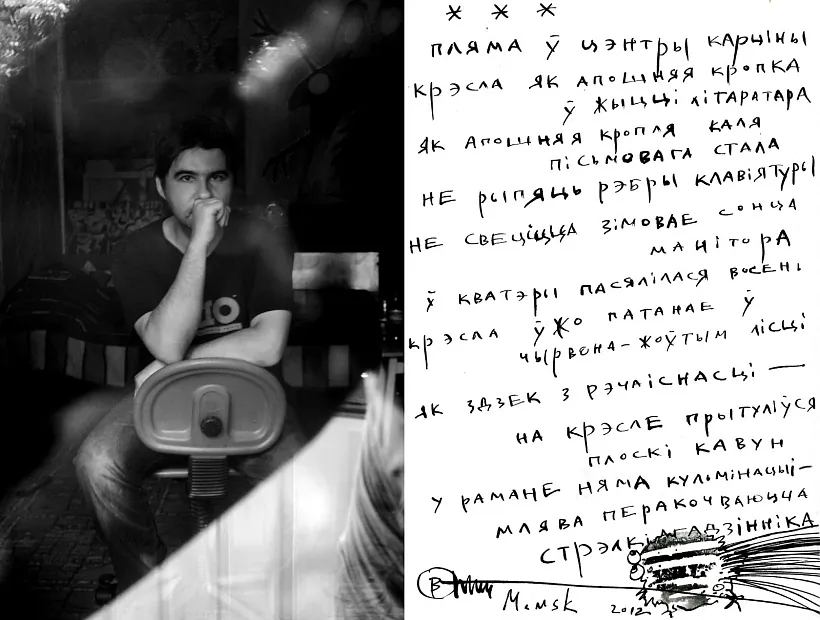 * * *
ПЛЯМА Ў ЦЭНТРЫ КАРЦІНЫ
КРЭСЛА ЯК АПОШНЯЯ КРОПКА
Ў ЖЫЦЦІ ЛІТАРАТАРА
ЯК АПОШНЯЯ КРОПЛЯ КАЛЯ
ПІСЬМОВАГА СТАЛА
НЕ РЫПЯЦЬ РЭБРЫ КЛАВІЯТУРЫ
НЕ СВЕЦІЦЦА ЗІМОВАЕ СОНЦА
МАНІТОРА
Ў КВАТЭРЫ ПАСЯЛІЛАСЯ ВОСЕНЬ
КРЭСЛА ЎЖО ПАТАНАЕ Ў
ЧЫРВОНА-ЖОЎТЫМ ЛІСЦІ
ЯК ЗДЗЕК З РЭЧАІСНАСЦІ —
НА КРЭСЛЕ ПРЫТУЛІЎСЯ
ПЛОСКІ КАВУН
У РАМАНЕ НЯМА КУЛЬМІНАЦЫІ—
МЛЯВА ПЕРАКОЧВАЮЦЦА
СТРЭЛКІ ГАДЗІННІКА
2012